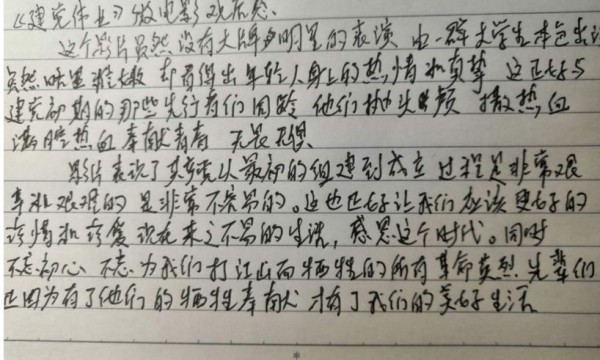 《建党伟业》微电影观后感.
这个影片虽然没有大牌声明星的表演 由一群大学生本色出演
虽然略显稚嫩 却看得出年轻人身上的热情和真挚 这正好与
建党初期的那些先行者们同龄 他们抛头颅 撒热血
满腔热血奉献青春 无畏无惧
影片表现了共产党从最初的组建到成立 过程是非常艰
辛和艰难的 是非常不容易的。这也正好让我们应该更好的
珍惜和珍爱现在来之不易的生活，感恩这个时代。同时
不忘初心 不忘为我们打江山而牺牲的所有革命英烈 先辈们
正因为有了他们的牺牲奉献 才有了我们的美好生活